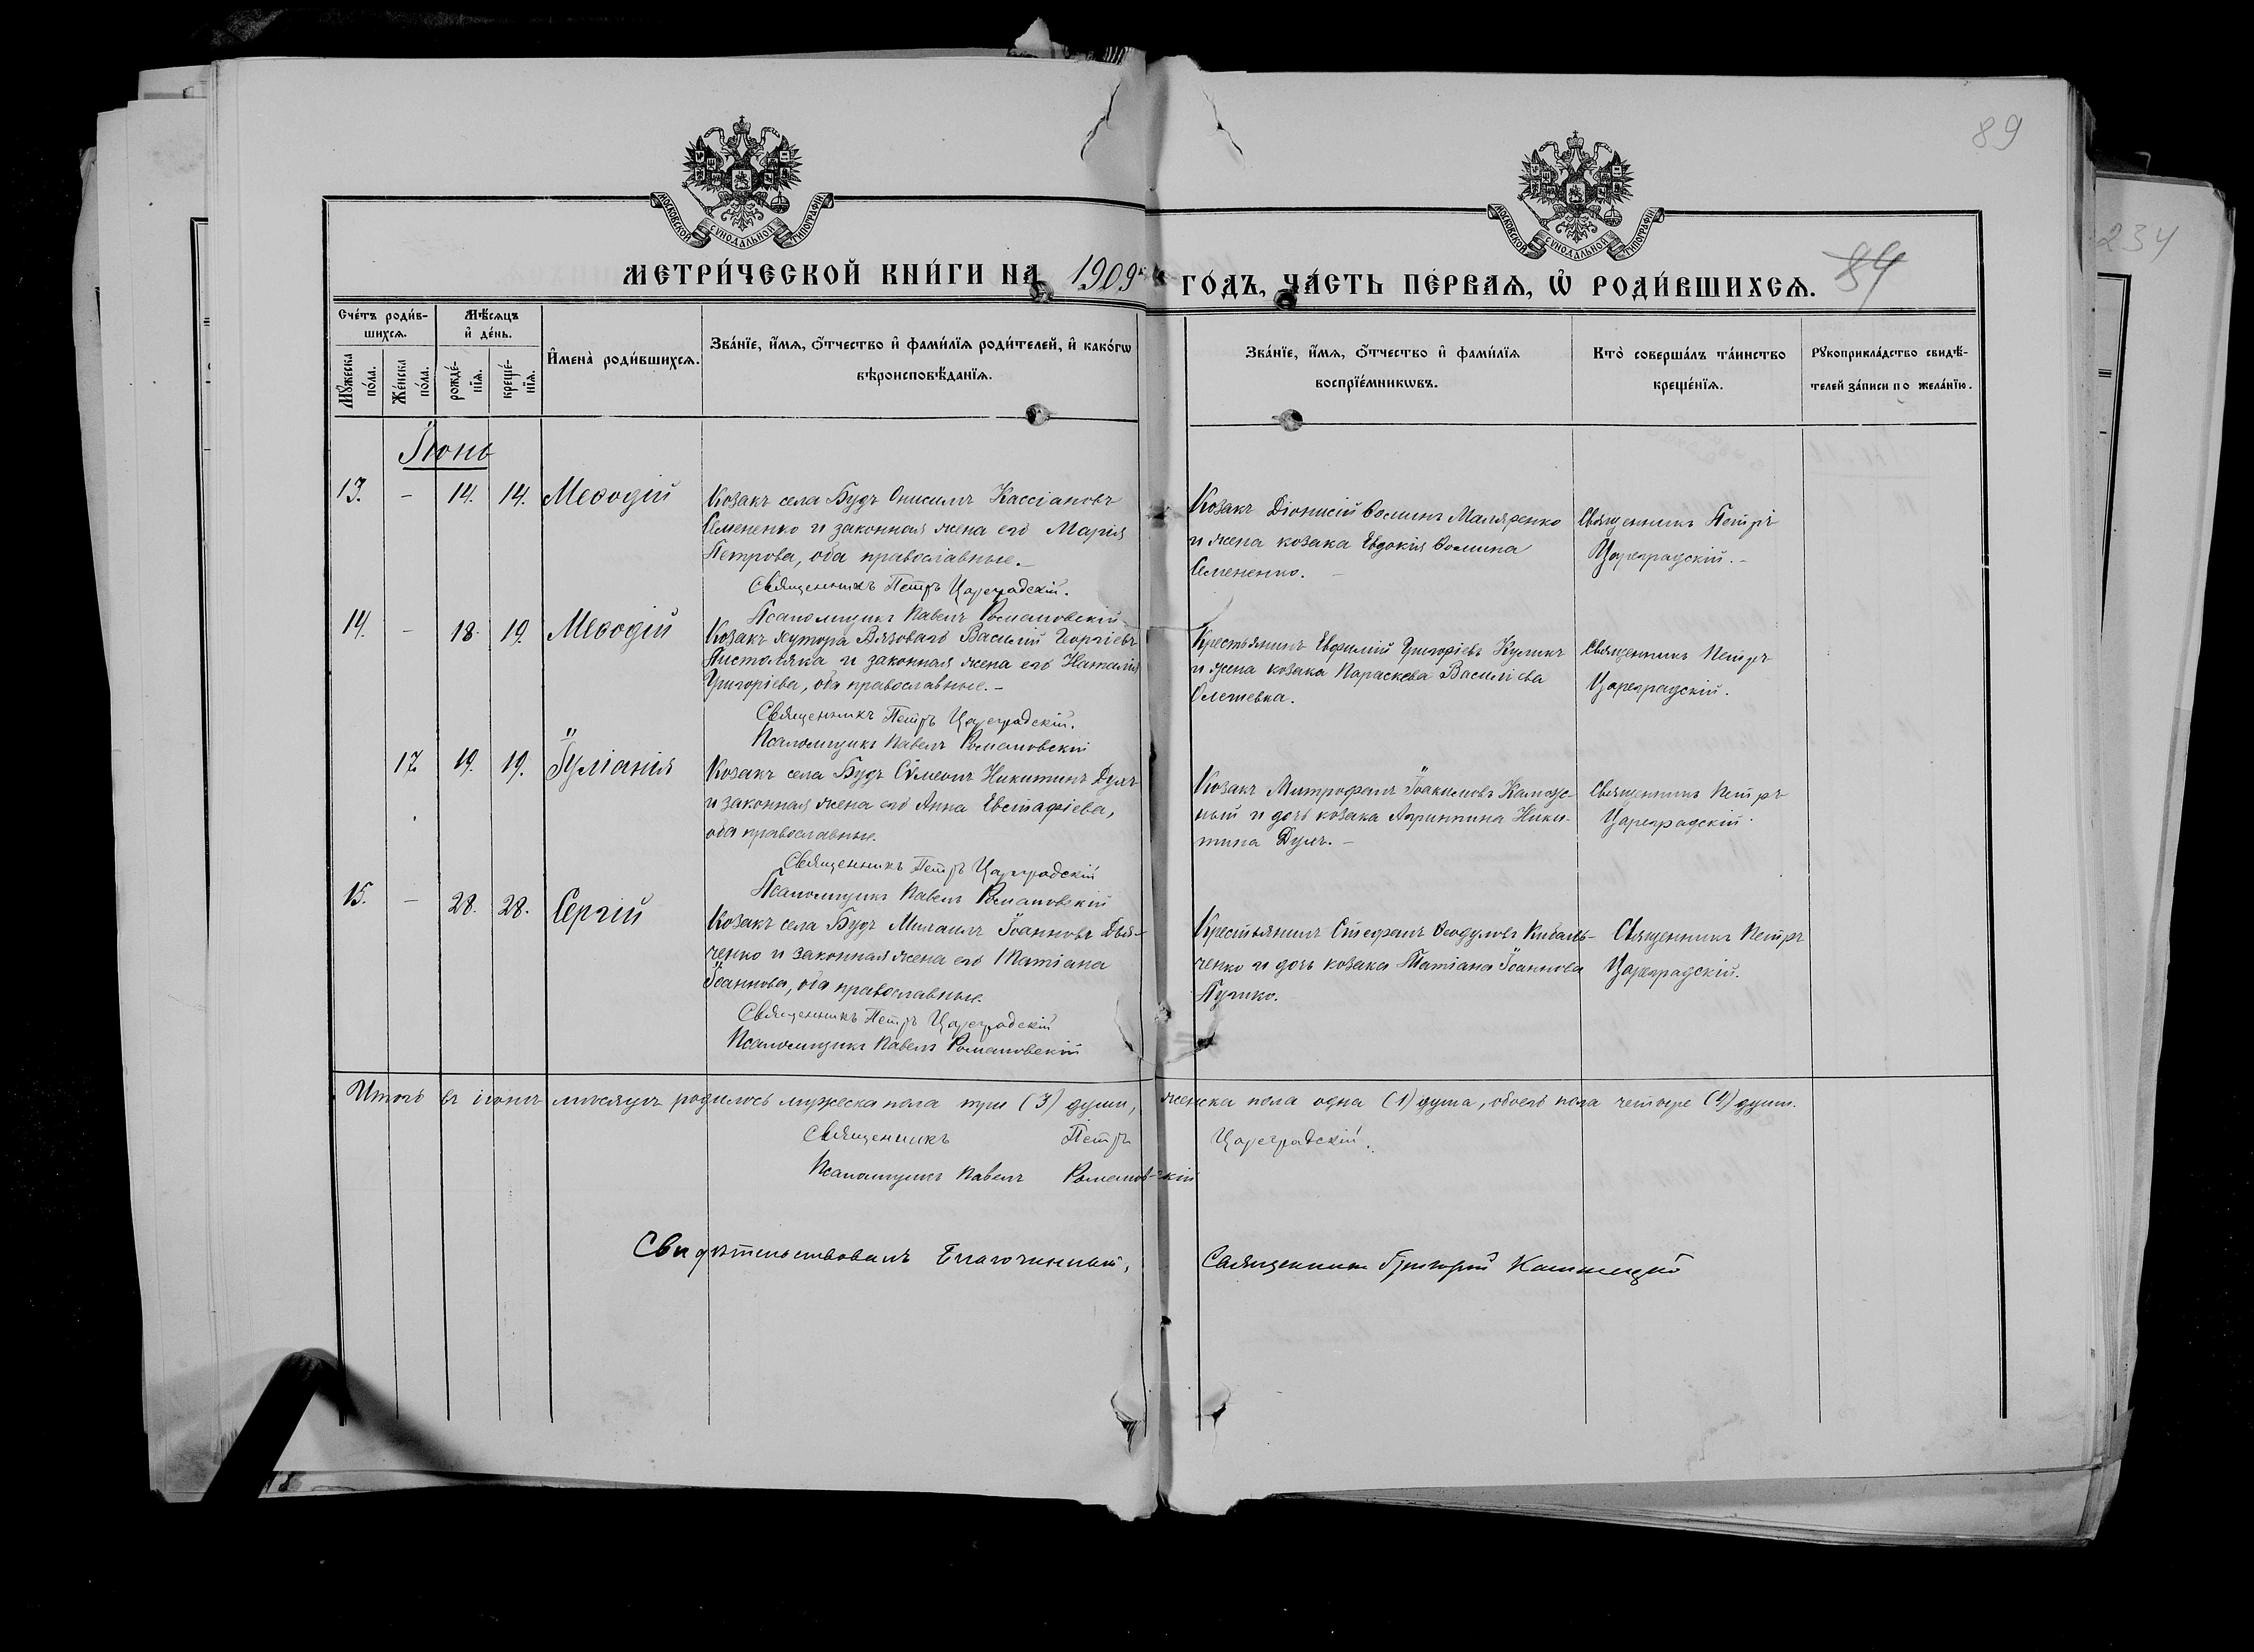 89
234
МОСКОВСКОЙ СѴНОДАЛЬНОЙ ТИПОГРАФІИ
МОСКОВСКОЙ СѴНОДАЛЬНОЙ ТИПОГРАФІИ
МЕТРИ́ЧЕСКОЙ КНИ́ГИ НА 1909 ГО́ДЪ, ЧА́СТЬ ПЕ́РВАѦ, Ѡ҆ РОДИ́ВШИХСѦ. 84
Сче́тъ роди́в-
шихсѧ.
Мꙋ́жеска по́ла.
Же́нска по́ла.
Мѣ́сѧцъ и҆ де́нь.
рожде́-нїѧ.
креще́-нїѧ.
И҆мена̀ роди́вшихсѧ.
Зва́нїе, и҆́мѧ, ѻ҆́тчество и҆ фами́лїѧ роди́телей, и҆ како́гѡ
вѣроисповѣ́данїѧ.
Зва́нїе, и҆́мѧ, ѻ҆́тчество и҆ фами́лїѧ
воспрїе́мникѡвъ.
Кто̀ соверша́лъ та́инство
креще́нїѧ.
Рꙋкоприкла́дство свидѣ́-
телей за́писи по жела́нїю.
Іюнь
13. – 14. 14. Меѳодій
Козакъ села Будъ Онисимъ Кассіановъ
Семененко и законная жена его Марія
Петрова, оба православные.–
Священникъ Петръ Цареградскій.
Псаломщикъ Павелъ Романовскій
Козакъ Діонисій Ѳоминъ Маляренко
и жена козака Евдокія Ѳомина
Семененко. –
Священникъ Петръ
Цареградскій.–
14. – 18. 19. Меѳодій
Козакъ хутора Вязоваго Василій Георгіевъ
Листовяка и законная жена его Наталія
Григоріева, оба православные.–
Священникъ Петръ Цареградскій.
Псаломщикъ Павелъ Романовскій
Крестьянинъ Евфимій Григоріевъ Куликъ
и жена козака Параскева Василіева
Священникъ Петръ
Цареградскій.
17. 19. 19. Іуліанія
Козакъ села Будъ Сѵмеонъ Никитинъ Думъ
и законная жена его Анна Евстафіева,
оба православные.
Священникъ Петръ Цареградскій
Псаломщикъ Павелъ Романовскій
Козакъ Митрофанъ Іоакимовъ
ный и дочь козака Агриппина Ники-
тина Думъ. –
Священникъ Петръ
Цареградскій.
15. – 28. 28. Сергій
Козакъ села Будъ Михаилъ Іоанновъ Дья-
ченко и законная жена его Татіана
Іоаннова, оба православные.
Священникъ Петръ Цареградскій
Псаломщикъ Павелъ Романовскій
Крестьянинъ Стефанъ Ѳеодуловъ Кибаль-
ченко и дочь козака Татіана Іоаннова
Священникъ Петръ
Цареградскій.
Итого въ іюнѣ мѣсяцѣ родилось мужеска пола три (3) души, женска пола одна (1) душа, обоего пола четыре (4) души.
Священникъ Петръ Цареградскій.
Псаломщикъ Павелъ Романовскій
Свидѣтельствовалъ Благочинный, Священникъ Григорій